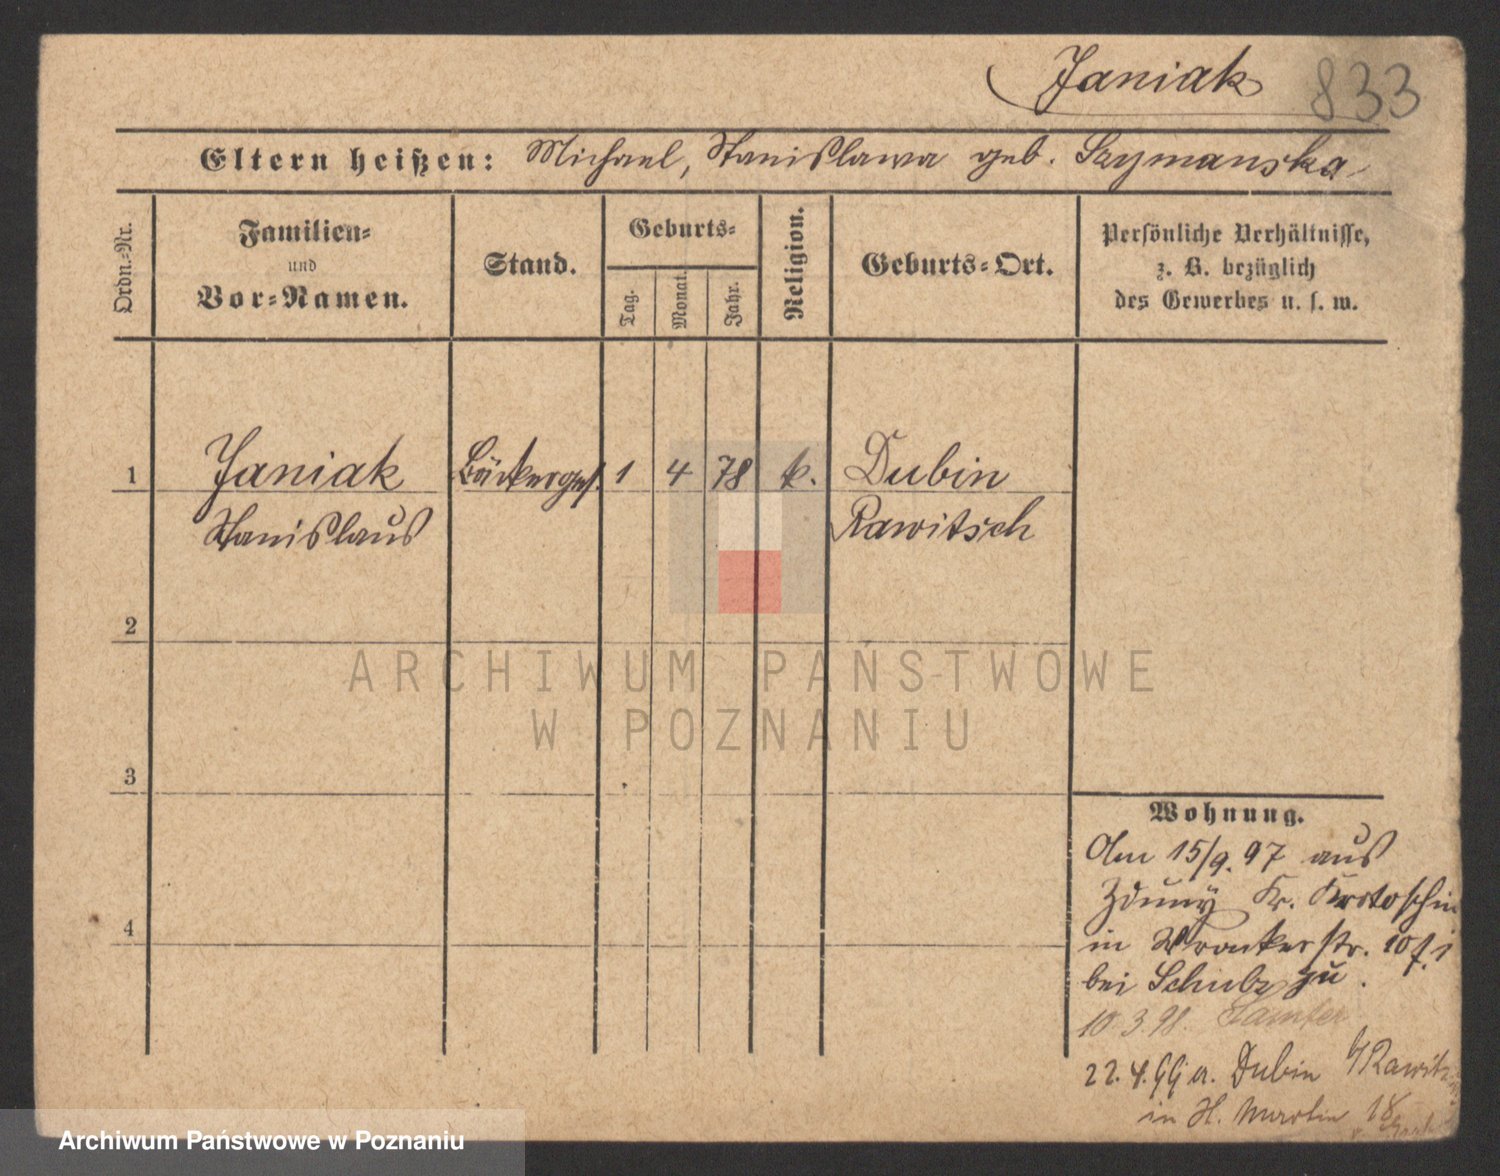 Janiak 833
Eltern heißen: Michael, Stanislawa geb. Szymanska
Ordn.-Nr.
Familien-
und
Vor-Namen.
Stand.
Geburts-
Tag.
Monat.
Jahr.
Religion.
Geburts-Ort.
Persönliche Verhältnisse,
z. B. bezüglich
des Gewerbes u. s. w.
1 Janiak Bäckerges. 1 4 78 k. Dubin
Stanislaus Rawitsch
2
3
4
Wohnung.
Am 15/9. 97 aus
Zduny Kr. Krotoschin
in Wronkerstr. 10
bei Schulz zu.
10. 3. 98. Samter
22. 4. 99 a. Dubin b/Rawitsch
in St. Martin 18
ARCHIWUM PAŃSTWOWE
W POZNANIU
Archiwum Państwowe w Poznaniu